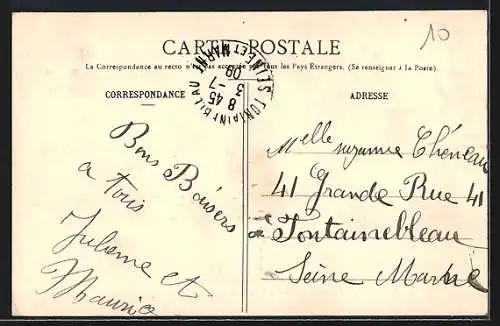 10
CARTE POSTALE
La Correspondance au recto n'est pas acceptée par tous les Pays Etrangers. (Se renseigner à la Poste).
CORRESPONDANCE
ADRESSE
8 45
3 - 7
09
FONTAINEBLEAU
SEINE ET MARNE
Bons Baisers
a tous
Julienne et
Maurice
Melle Suzanne Chéneau
41 Grande Rue 41
Fontainebleau
Seine Marne